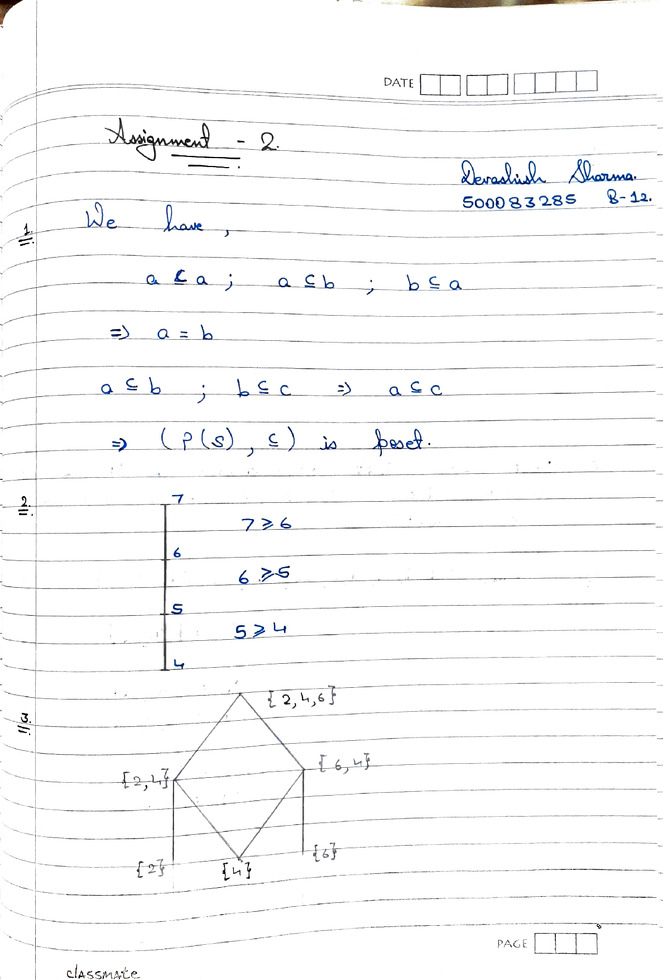 DATE
Assignment - 2.
Devashish Sharma.
500083285 B-12.
1. We have,
a ⊆ a ; a ⊆ b ; b ⊆ a
=> a = b
a ⊆ b ; b ⊆ c => a ⊆ c
=> (P(S), ⊆) is poset.
2. 7
7 ⩾ 6
6
6 ⩾ 5
5
5 ⩾ 4
4
3. {2,4,6}
{2,4} {6,4}
{2} {4} {6}
PAGE
classmate